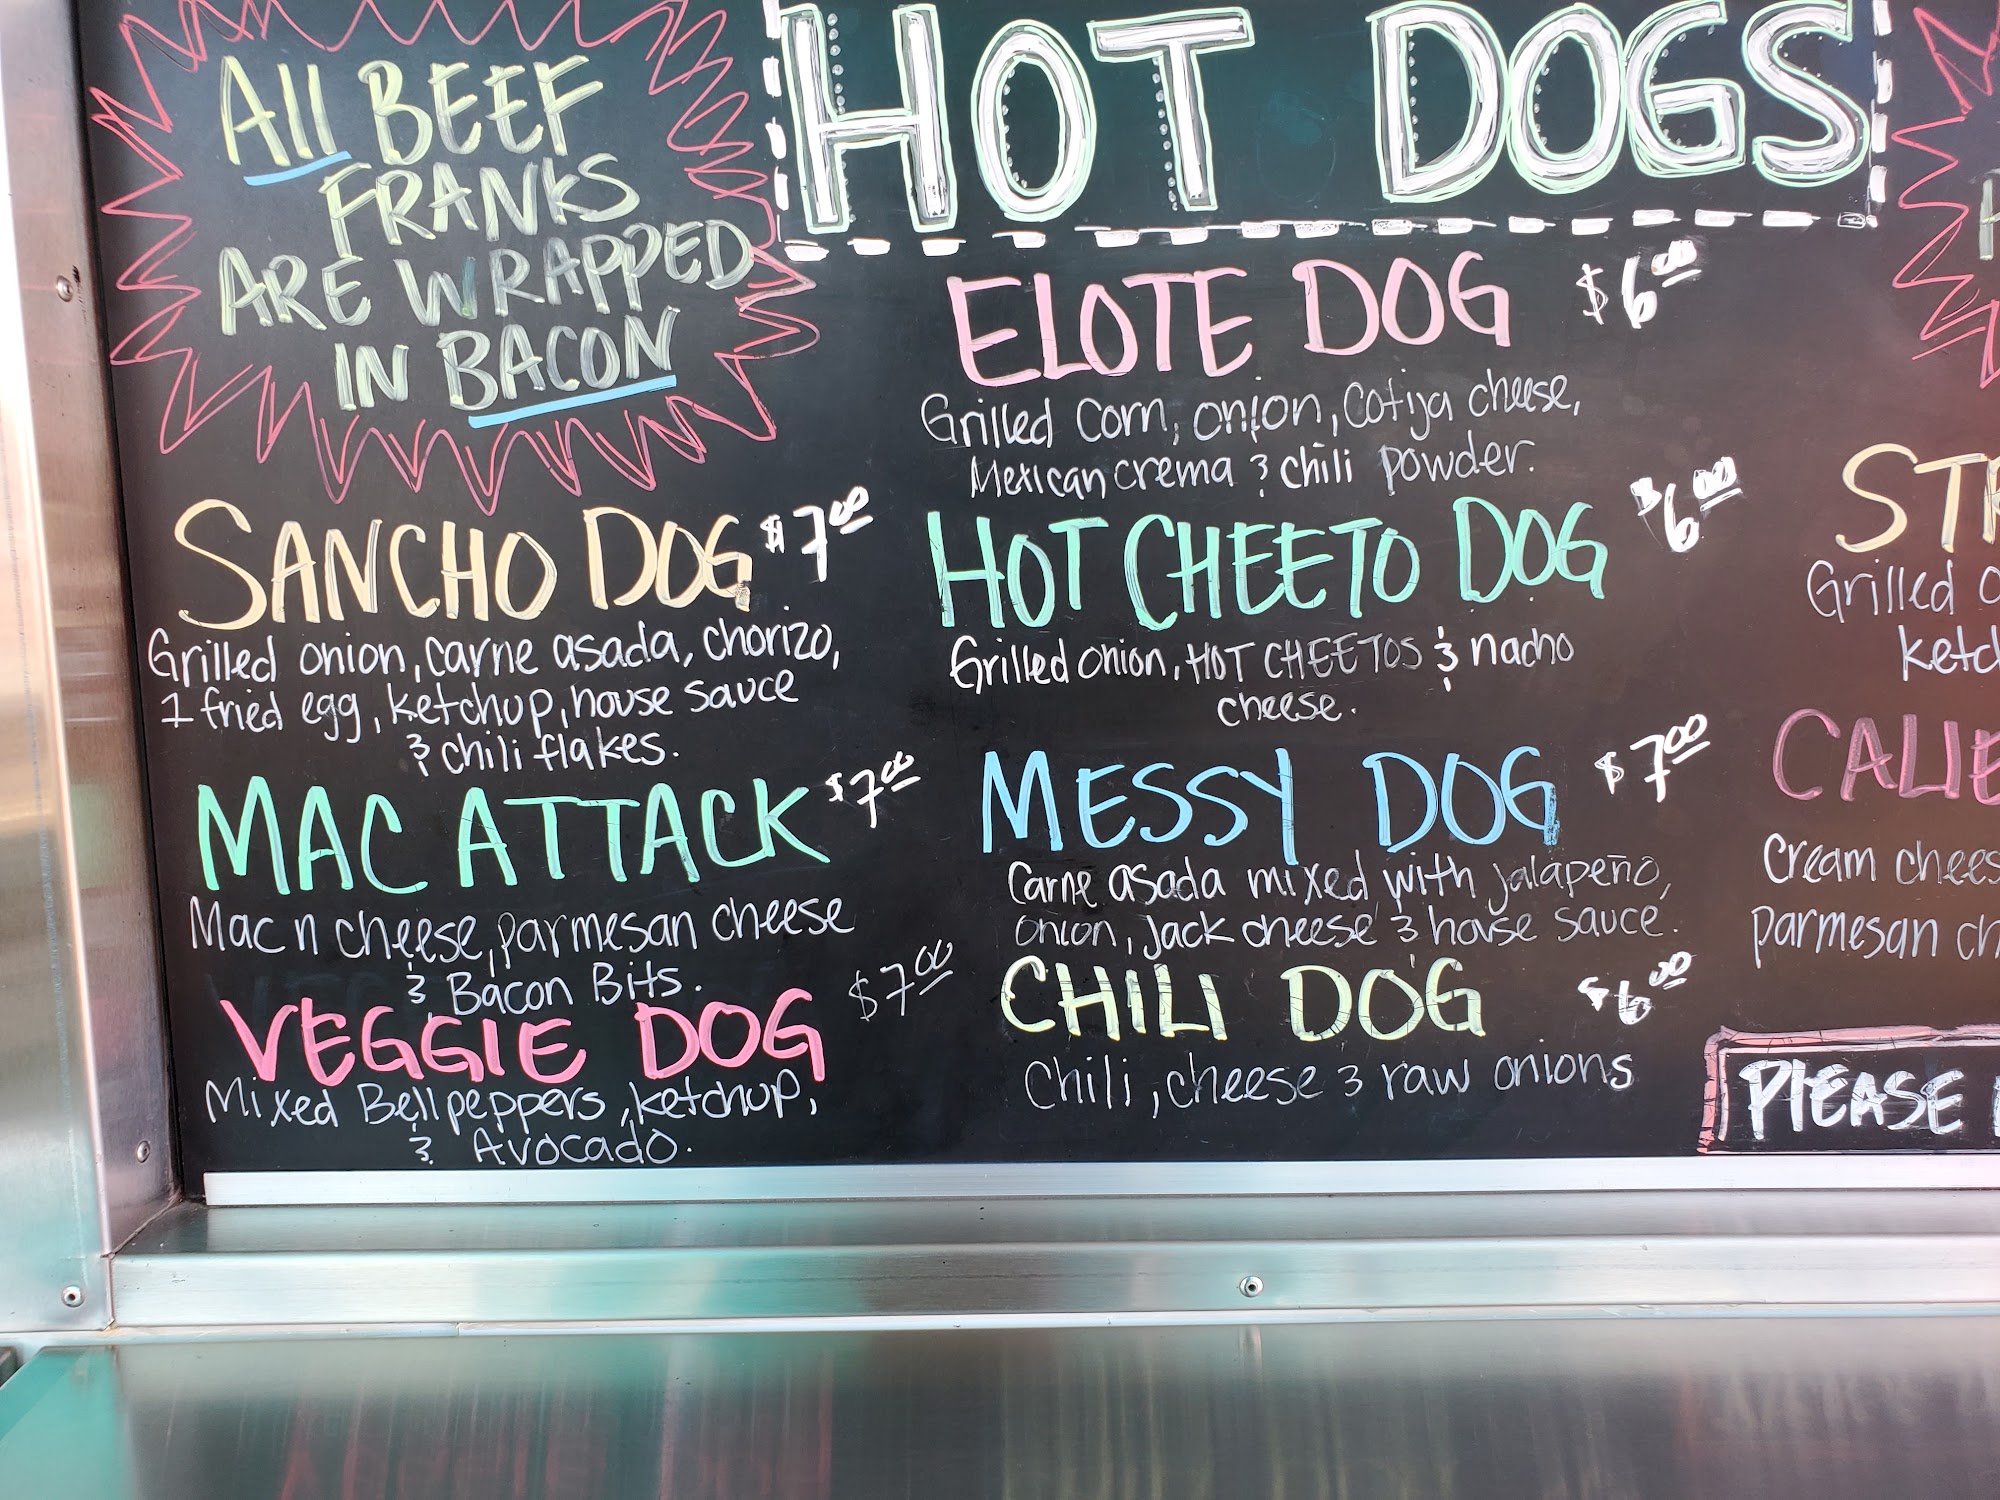 All BEEF
FRANKS
ARE WRAPPED
IN BACON
HOT DOGS
SANCHO DOG $7.00
Grilled onion, carne asada, chorizo,
1 fried egg, ketchup, house sauce
& chili flakes.
MAC ATTACK $7.00
Mac n cheese, parmesan cheese
& Bacon Bits.
VEGGIE DOG $7.00
Mixed Bell peppers, ketchup,
& Avocado.
ELOTE DOG $6.00
Grilled corn, onion, Cotija cheese,
Mexican crema & chili powder.
HOT CHEETO DOG $6.00
Grilled onion, HOT CHEETOS & nacho
cheese.
MESSY DOG $7.00
Carne asada mixed with jalapeño,
onion, jack cheese & house sauce.
CHILI DOG $6.00
Chili, cheese & raw onions
Grilled
Cream
parmesan
PlEASE